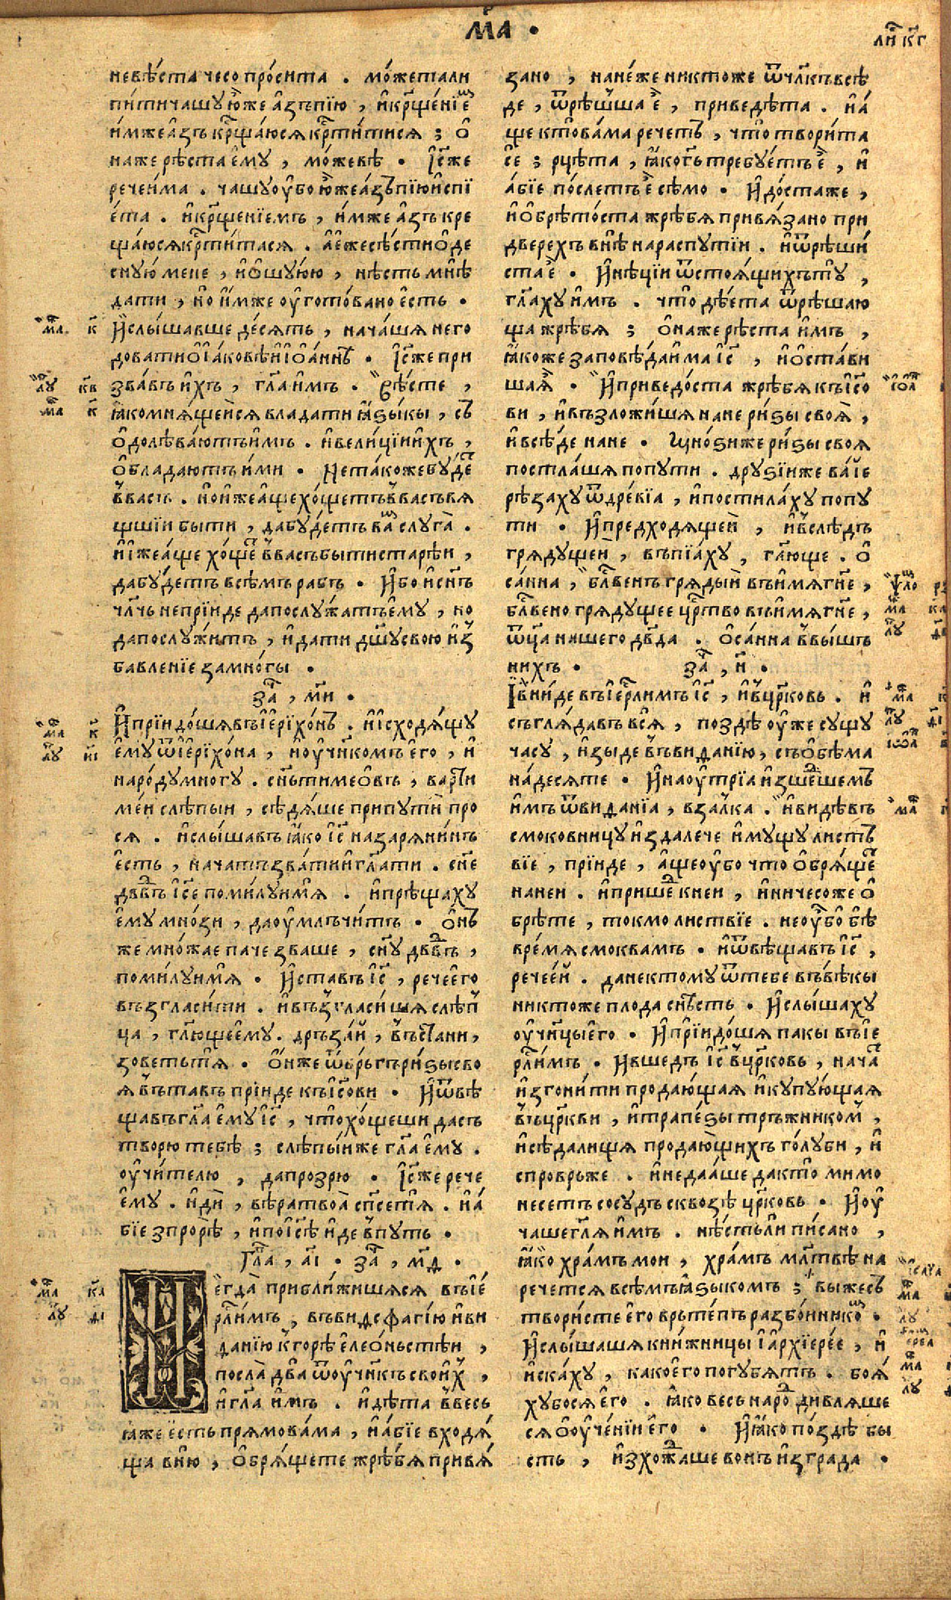 Мр҃А ·
ли҃ к҃г
невѣ́ста чесо про́сита . мо́жетали
пи́ти чашу ю҆́же а҆́зъ пїю̀ , и҆ кр҃ще́нїе
и҆́мже а҆́зъ кр҃ща́юся кр҃ти́тися ; ѻ҆
на же рѣ́ста е҆му , мо́жевѣ · І҆с҃ же
рече и҆́ма . чашу ѹ҆бо ю҆́же а҆́зъ пїю̀ и҆спї
е́та . и҆ кр҃ще́нїемъ , и҆́мже а҆́зъ кре
ща́юся кр҃ти́тася . а҆ е҆́же сѣ́сти ѡ҆ де
сную́ мене , и҆ ѡ҆шуюю , нѣ́сть мнѣ̀
дати , но и҆́мже ѹ҆гото́вано е҆́сть ·
И҆ слы́шавше де́сять , нача́шя него
довати ѡ҆ і҆а́ковѣ и҆ і҆ѡа́ннѣ · І҆с҃ же при
зва́въ и҆́хъ , гл҃а и҆мъ . вѣ́сте ,
ꙗ҆ко мня́щеися влада́ти ꙗ҆зы́кы , съ
ѡ҆долѣва́ютъ и҆мъ . и҆ вели́цїи и҆́хъ ,
ѡ҆блада́ютъ и҆́ми · Не та́коже бу́де
в васъ . но и҆́же а҆́ще хо́щетъ в васъ вя
щшїи быти , да бу́детъ ва слуга̀ .
и҆ и҆́же а҆́ще хо́ще в васъ быти старѣ́и ,
да бу́детъ всѣ́мъ рабъ · И҆́бо и҆ сн҃ъ
чл҃чь не прїи́де да послу́жатъ е҆му , но
да послу́житъ , и҆ дати дш҃у свою и҆з
бавленїе за мно́гы ·
за҃ , мг҃и ·
И҆ прїидо́шя въ і҆ерїхо́нъ . и҆ и҆сходя́щу
е҆му ѿ і҆ерїхо́на , и҆ ѹ҆чн҃ко́мъ е҆го , и҆
наро́ду мно́гу . сн҃ъ тиме́ѡвъ , варти
ме́и слѣпы́и , сѣдя́ше при пути̂ про
ся . и҆ слы́шавъ ꙗ҆́ко і҆с҃ назаряни́нъ
е҆́сть , нача́тъ зва́ти и҆ гл҃ати . сн҃е
дв҃въ і҆с҃е поми́луи мя̀ . и҆ прѣща́ху
е҆му мно́зи , да ѹ҆млъчи́тъ · Ѻ҆н
же мно́жае паче зва́ше , сн҃у дв҃въ ,
поми́луи мя̀ · И҆ ста́въ і҆с҃ , рече е҆го
възгласи́ти . и҆ възгласи́шя слѣп
ца , гл҃юще е҆му . дръза́и , въста́ни ,
зоветь тя̀ · Ѻ҆н же ѿвръгъ ри́зы сво
я въста́въ прїи́де къ і҆с҃ови · И҆ ѿвѣ
ща́въ гл҃а е҆му і҆с҃ , что хо́щеши дасъ
творю тебѣ̀ ; слѣпы́и же гл҃а е҆му .
ѹ҆чи́телю , да прозрю · І҆с҃ же рече
е҆му . и҆ди̂ , вѣ́ра твоа̀ сп҃се тя̀ . и҆ а́
бїе зпрорѣ̀ , и҆ по і҆с҃ѣ и҆́де в путь ·
Гл҃а , а҃і · за҃ , м҃д ·
И҆егда̀ прибли́жишяся въ і҆е
рл҃и́мъ , въ виѳсфагі́ю и҆ ви
дані́ю к горѣ̀ е҆лео́ньстѣи ,
посла̀ два ѿ ѹ҆чн҃къ свои́х ,
и҆ гл҃а и҆мъ . и҆дѣта в весь
ꙗ҆́же е҆́сть прямова́ма , и҆ а́бїе входя́
ща в ню , ѡ҆бря́щете жрѣ́бя привя́
зано , на не́же никто́же ѿ чл҃къ всѣ́
де , ѿрѣ́шша е҆ , приведѣ́та . и҆ а́
ще кто̀ ва́ма речеть , что̀ твори́та
се̂ ; рцѣ́та , ꙗ҆ко г҃ь тре́буетъ е҆ , и҆
а́бїе по́слетъ е҆ сѣ́мо · И҆ до́стаже ,
и҆ ѡ҆брѣто́ста жрѣ́бя привя́зано при
две́рехъ внѣ̀ на распу́тїи . и҆ ѿрѣ́ши
ста е҆ · И҆ нѣ́цїи ѿ стоя́щихъ ту̀ ,
гл҃аху и҆мъ . что̀ дѣ́ета ѿрѣша́ю
ща жрѣ́бя ; ѻ҆на же рѣ́ста и҆мъ ,
ꙗ҆коже заповѣ́да и҆ма і҆с҃ , и҆ ѡ҆ста́ви
ша ꙗ҆̀ · И҆ приведо́ста жрѣ́бя къ і҆с҃о
ви , и҆ възложи́шя на не ри́зы своя̀ ,
и҆ всѣ́де на не · Мно́зи же ри́зы своя
посла́шя по пути . дру́зїи же ва́їе
рѣ́заху ѿ дре́вїа , и҆ постила́ху по пу
ти · И҆ предходя́щеи , и҆ вслѣ́дъ
гряду́щеи , въпїа́ху , гл҃юще . ѻ҆
са́нна , бл҃ве́нъ гряды́и въ и҆мя гн҃е ,
бл҃ве́но гряду́щее цр҃ство въ и҆мя гн҃е ,
ѿц҃а на́шего дв҃да . ѻ҆са́нна в вы́шь
нихъ · за҃ , н҃ .
І҆ вни́де въ і҆ерл҃и́мъ і҆с҃ , и҆ в цр҃ковь . и҆
съгляда́въ вся̀ , по́здѣ ѹ҆же су́щу
часу , и҆зы́де въ виѳані́ю , съ ѻ҆бѣ́ма
на́десяте · И҆ наѹ҆трїа и҆зше́дшемъ
и҆мъ ѿ виѳані́а , взалка̀ . и҆ ви́дѣвъ
смоко́вницу и҆здале́че и҆му́щу ли́ст
вїе , прїи́де , а҆́ще ѹ҆бо что̀ ѡ҆бря́ще
на неи . и҆ прише́д к неи , и҆ ничесо́же ѡ҆
брѣ́те , токмо ли́ствїе . не ѹ҆бо бѣ̀
вре́мя смо́квамъ · и҆ ѿвѣща́въ і҆с҃ ,
рече е҆́и . да не ктому̀ ѿ тебе въ вѣ́кы
никто́же плода̀ снѣ́сть · И҆ слы́шаху
ѹ҆чн҃цы е҆го · И҆ прїидо́шя па́кы въ і҆е
рл҃и́мъ · И҆ вше́дъ і҆с҃ в цр҃ковь , нача́
и҆згони́ти прода́ющая и҆ купу́ющая
въ цр҃кви , и҆ трапе́зы тръжнико́м ,
и҆ сѣда́лищя прода́ющихъ го́луби , и҆
спроврьже . и҆ не дая́ше да кто̀ ми́мо
несе́тъ сосу́дъ сквозѣ̀ цр҃ковь · И҆ ѹ҆
ча́ше гл҃я и҆мъ . нѣ́сть ли пи́сано ,
ꙗ҆ко хра́мъ мои , хра́мъ мл҃твѣ на
рече́тся всѣ́мъ ꙗ҆зы́комъ ; вы же съ
твори́сте е҆го врьте́пъ разбо́йнико .
И҆ слы́шашя кни́жницы и҆ а҆рхїере́е , и҆
и҆ска́ху , како е҆го погубя́тъ . боя́
хубося е҆го . ꙗ҆ко весь наро́ дивля́ше
ся ѡ҆ ѹ҆че́нїи е҆го · И҆ ꙗ҆́ко по́здѣ бы
сть , и҆зхожа́ше во́нъ и҆з гра́да ·